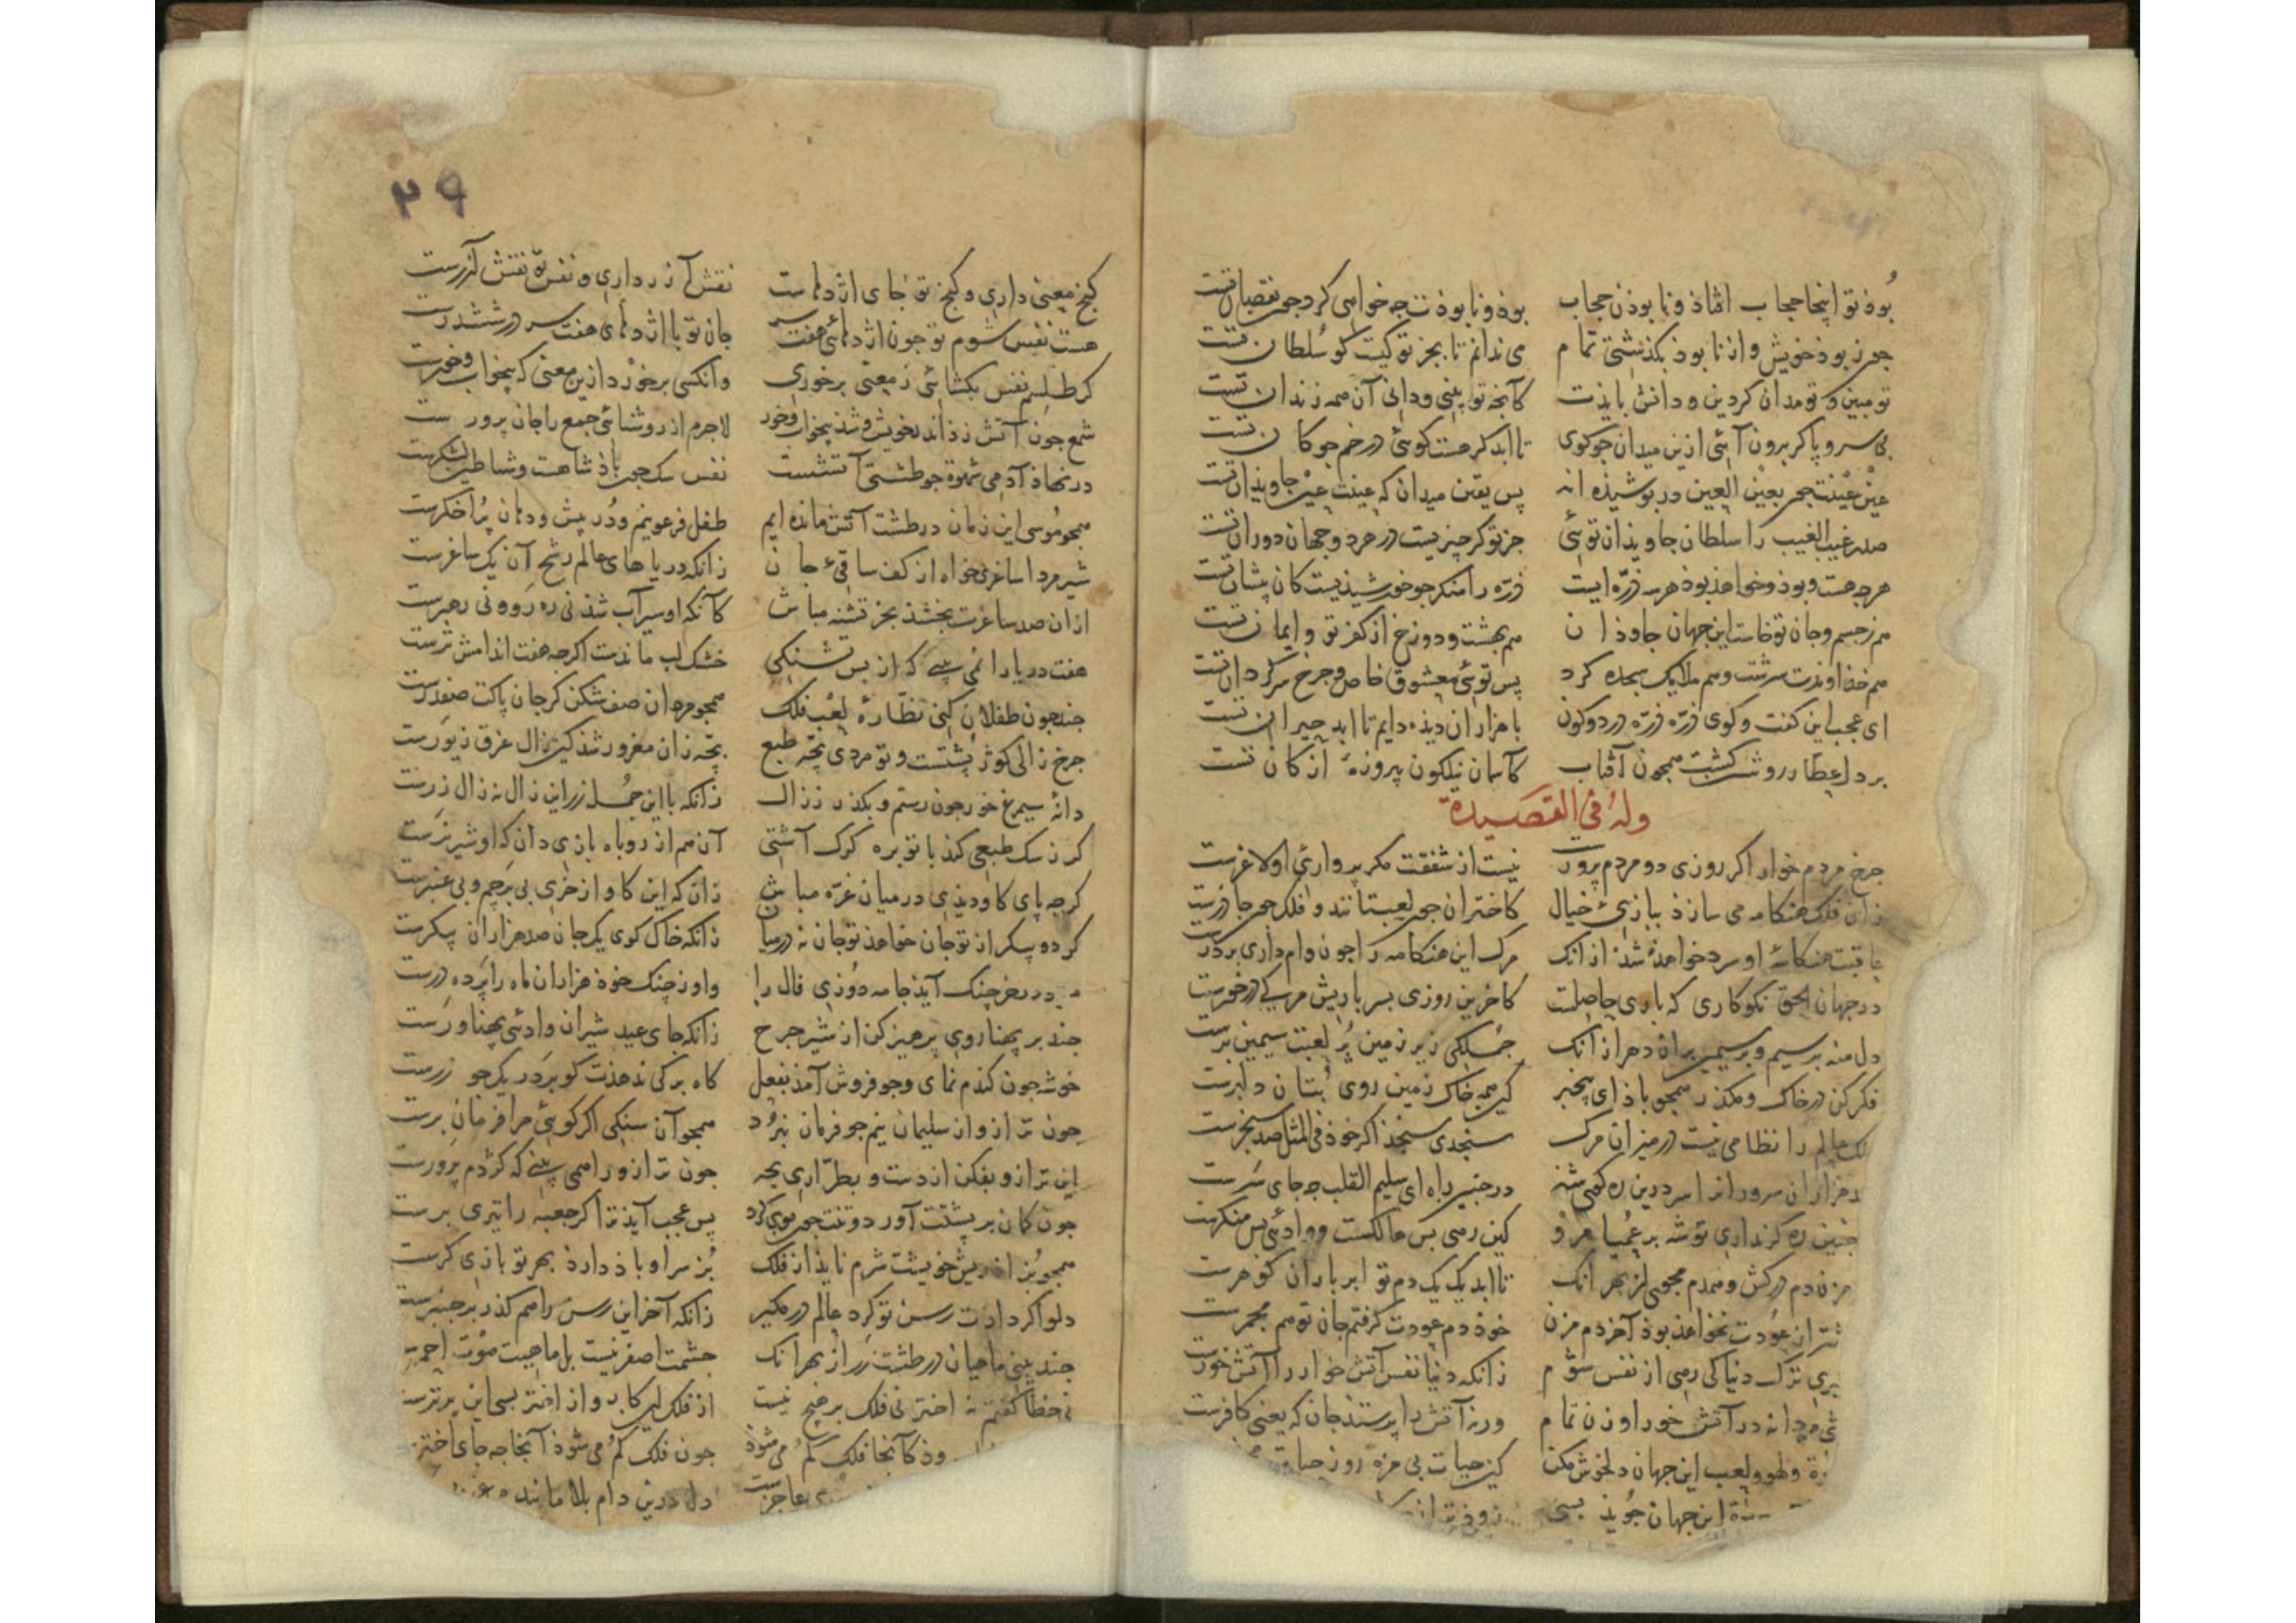 بوذ تو اینجا حجاب افتاذ و نابوذن حجاب
بوذ و نابوذت چه خواهی کرد چون نقصان تست
چون ز بوذ خویش و از نابوذ بگذشتی تمام
می ندانم تا بجز تو کیست کو سلطان تست
تو مبین و تو مدان گر دین و دانش بایذت
کانچه تو بینی و دانی آن همه زندان تست
بی سر و پا گر برون آئی ازین میدان چو گوی
تا ابد گر هست گوئی در خم چوگان تست
عین عینت چون بعین العین در پوشیذه اند
پس یقین میدان که عینت عین جاویذان تست
صدر غیب الغیب را سلطان جاویذان توئی
جز تو گر چیزیست در هر دو جهان دوران تست
هرچه هست و بوذ و خواهذ بوذ هر سه ذره ایست
ذره را منکر چو خورشیذیست کان پیشان تست
هم ز جسم و جان تو خاست این جهان جاوذان
هم بهشت و دوزخ از کفر تو و ایمان تست
هم خذاوندت سرشت و هم ملایک سجده کرد
پس توئی معشوق خاص و چرخ سرگردان تست
ای عجب این کفت و کوی ذره ذره در دو کون
با هزاران دیذه دایم تا ابد حیران تست
بر دل عطار روشن کشت همچون آفتاب
کاسمان نیلگون پیروزهٔ از کان تست
وله فی القصیدة
چرخ مردم خوار اگر روزی دو مردم پرورست
نیست از شفقت مگر پرواری او لاغرست
زان فلک هنگامه می سازذ ببازی خیال
کاختران چون لعبتانند و فلک چون چاذرست
عاقبت هنگامهٔ او سرد خواهذ شذ از انک
مرک این هنکامه را چون وام داری بر درست
در جهان الحق نکوکاری که باری حاصلت
کاخرین روزی بسر باریش مرگی درخورست
دل منه بر سیم و بر سیمین بران دهر از انک
جملکی زیر زمین پر لعبت سیمین برست
فکر کن در خاک و مگذر همچو باذ ای بیخبر
کین همه خاک زمین روی بتان دلبرست
ملک عالم را نظامی نیست در میزان مرک
سنجدی سنجذ اگر خوذ فی المثل صد سنجرست
صد هزاران سروران را سر درین ره گوی شد
در چنین راه ای سلیم القلب چه جای سرست
چنین ره گر نداری توشه بر عمیا مرو
کین رهی بس هالکست و وادئی بس منکرست
مزن دم در کش و همدم مجوی از بهر انک
تا ابد یک یک دم تو ابر باران گوهرست
عودت نخواهذ بوذ آخر دم مزن
خوذ دم عودت گرفتم جان تو هم مجمرست
بری ترک دنیا کی رهی از نفس شوم
زانکه دنیا نفس آتش خوار را آتش خورست
دانه در آتش خور او زن تمام
ورنه آتش را پرستذ جان که یعنی کافرست
و لهو و لعب این جهان دلخوش مکن
کین حیات بی مزه روز
این جهان جویذ بسی
٢٩
گنج معنی داری و گنج تو جای اژدهاست
نقش آذر داری و نفس تو نقش آزرست
هست نفس شوم تو چون اژدهائی هفت سر
جان تو با اژدهای هفت سر در ششدرست
گر طلسم نفس بکشائی ز معنی برخوری
وانکسی برخورد ازین معنی که بیخواب و خورست
شمع چون آتش زذ اندر خویش و شذ بیخواب و خور
لاجرم از روشنائی جمع را جان پرورست
در نهاذ آدمی شهوة چو طشتی آتشست
نفس سک چون باذشاهست و شیاطین لشکرست
همچو موسی این زمان در طشت آتش مانده ایم
طفل فرعونیم و دُر پیش و دهان پر اخگرست
شیرمردا ساغری خواه از کف ساقیء جان
زانکه دریاهای عالم رشح آن یک ساغرست
از ان صد ساغرت بخشذ بجز تشنه مباش
کانکه او سیراب شذ نی ره رو و نی رهبرست
هفت دریا را نمی بینی که از بس تشنگی
خشک لب ماندست اگرچه هفت اندامش ترست
چند چون طفلان کنی نظارهٔ لعب فلک
همچو مردان صف شکن گر جان پاکت صفدرست
چرخ زالی کوژ پشتست و تو مردی پخته طبع
بچه زان مغرور شذ کین زال غرق زیورست
دانهٔ سیمرغ خور چون رستم و بگذر ز زال
زانکه با این جمله زر این زال نه زال زرست
گر ز سک طبعی کند با تو بره گرگ آشتی
آن هم از روباه بازی دان که او شیر نرست
گرچه پای گاو دیذی در میان غره مباش
زان که این گاو از خری بی پرچم و بی عنبرست
گر دو پیکر از تو جان خواهذ تو جان نه در میان
زانکه خاک کوی یک جان صد هزاران پیکرست
خرچنگ آیذ جامه دوزی فال را
واو ز چنگ خوذ هزاران ماه را پرده درست
چند بر پهنا روی پرهیز کن از شیر چرخ
زانکه جای عید شیران وادئی پهناورست
خوشه چون گندم نمای و جو فروش آمذ بفعل
کاه برگی ندهذت کو بر در یک جو زرست
چون ترازو از سلیمان نیم جو فرمان نبرد
همچو آن سنگی اگر کوئی مرا فرمان برست
این ترازو بفکن از دست و بطراری بجه
چون ترازو را همی بینی که کژدم پرورست
چون کمان بر پشتت آورد دو تنت چون موی کرد
پس عجب آیذ ترا گر جعبه را تیری برست
همچو بز از ریش خویشت شرم نایذ از فلک
بز سر او باذ دارذ بهر تو بازی گرست
دلو اگر دادت رسن تو کرد عالم در مگیر
زانکه آخر این رسن را هم گذر بر چنبرست
چند بینی ماهیان در طشت زر از بهر انک
چشمت اصفر نیست بل ماهیت موت احمرست
نی خطا گفتم نه اختر نی فلک بر هیچ نیست
از فلک این کار و از اختر بسی این برترست
کانجا فلک گم می شوذ
چون فلک گم می شوذ آنجا چه جای اخترست
عاجزست
دل درین دام بلا مانده